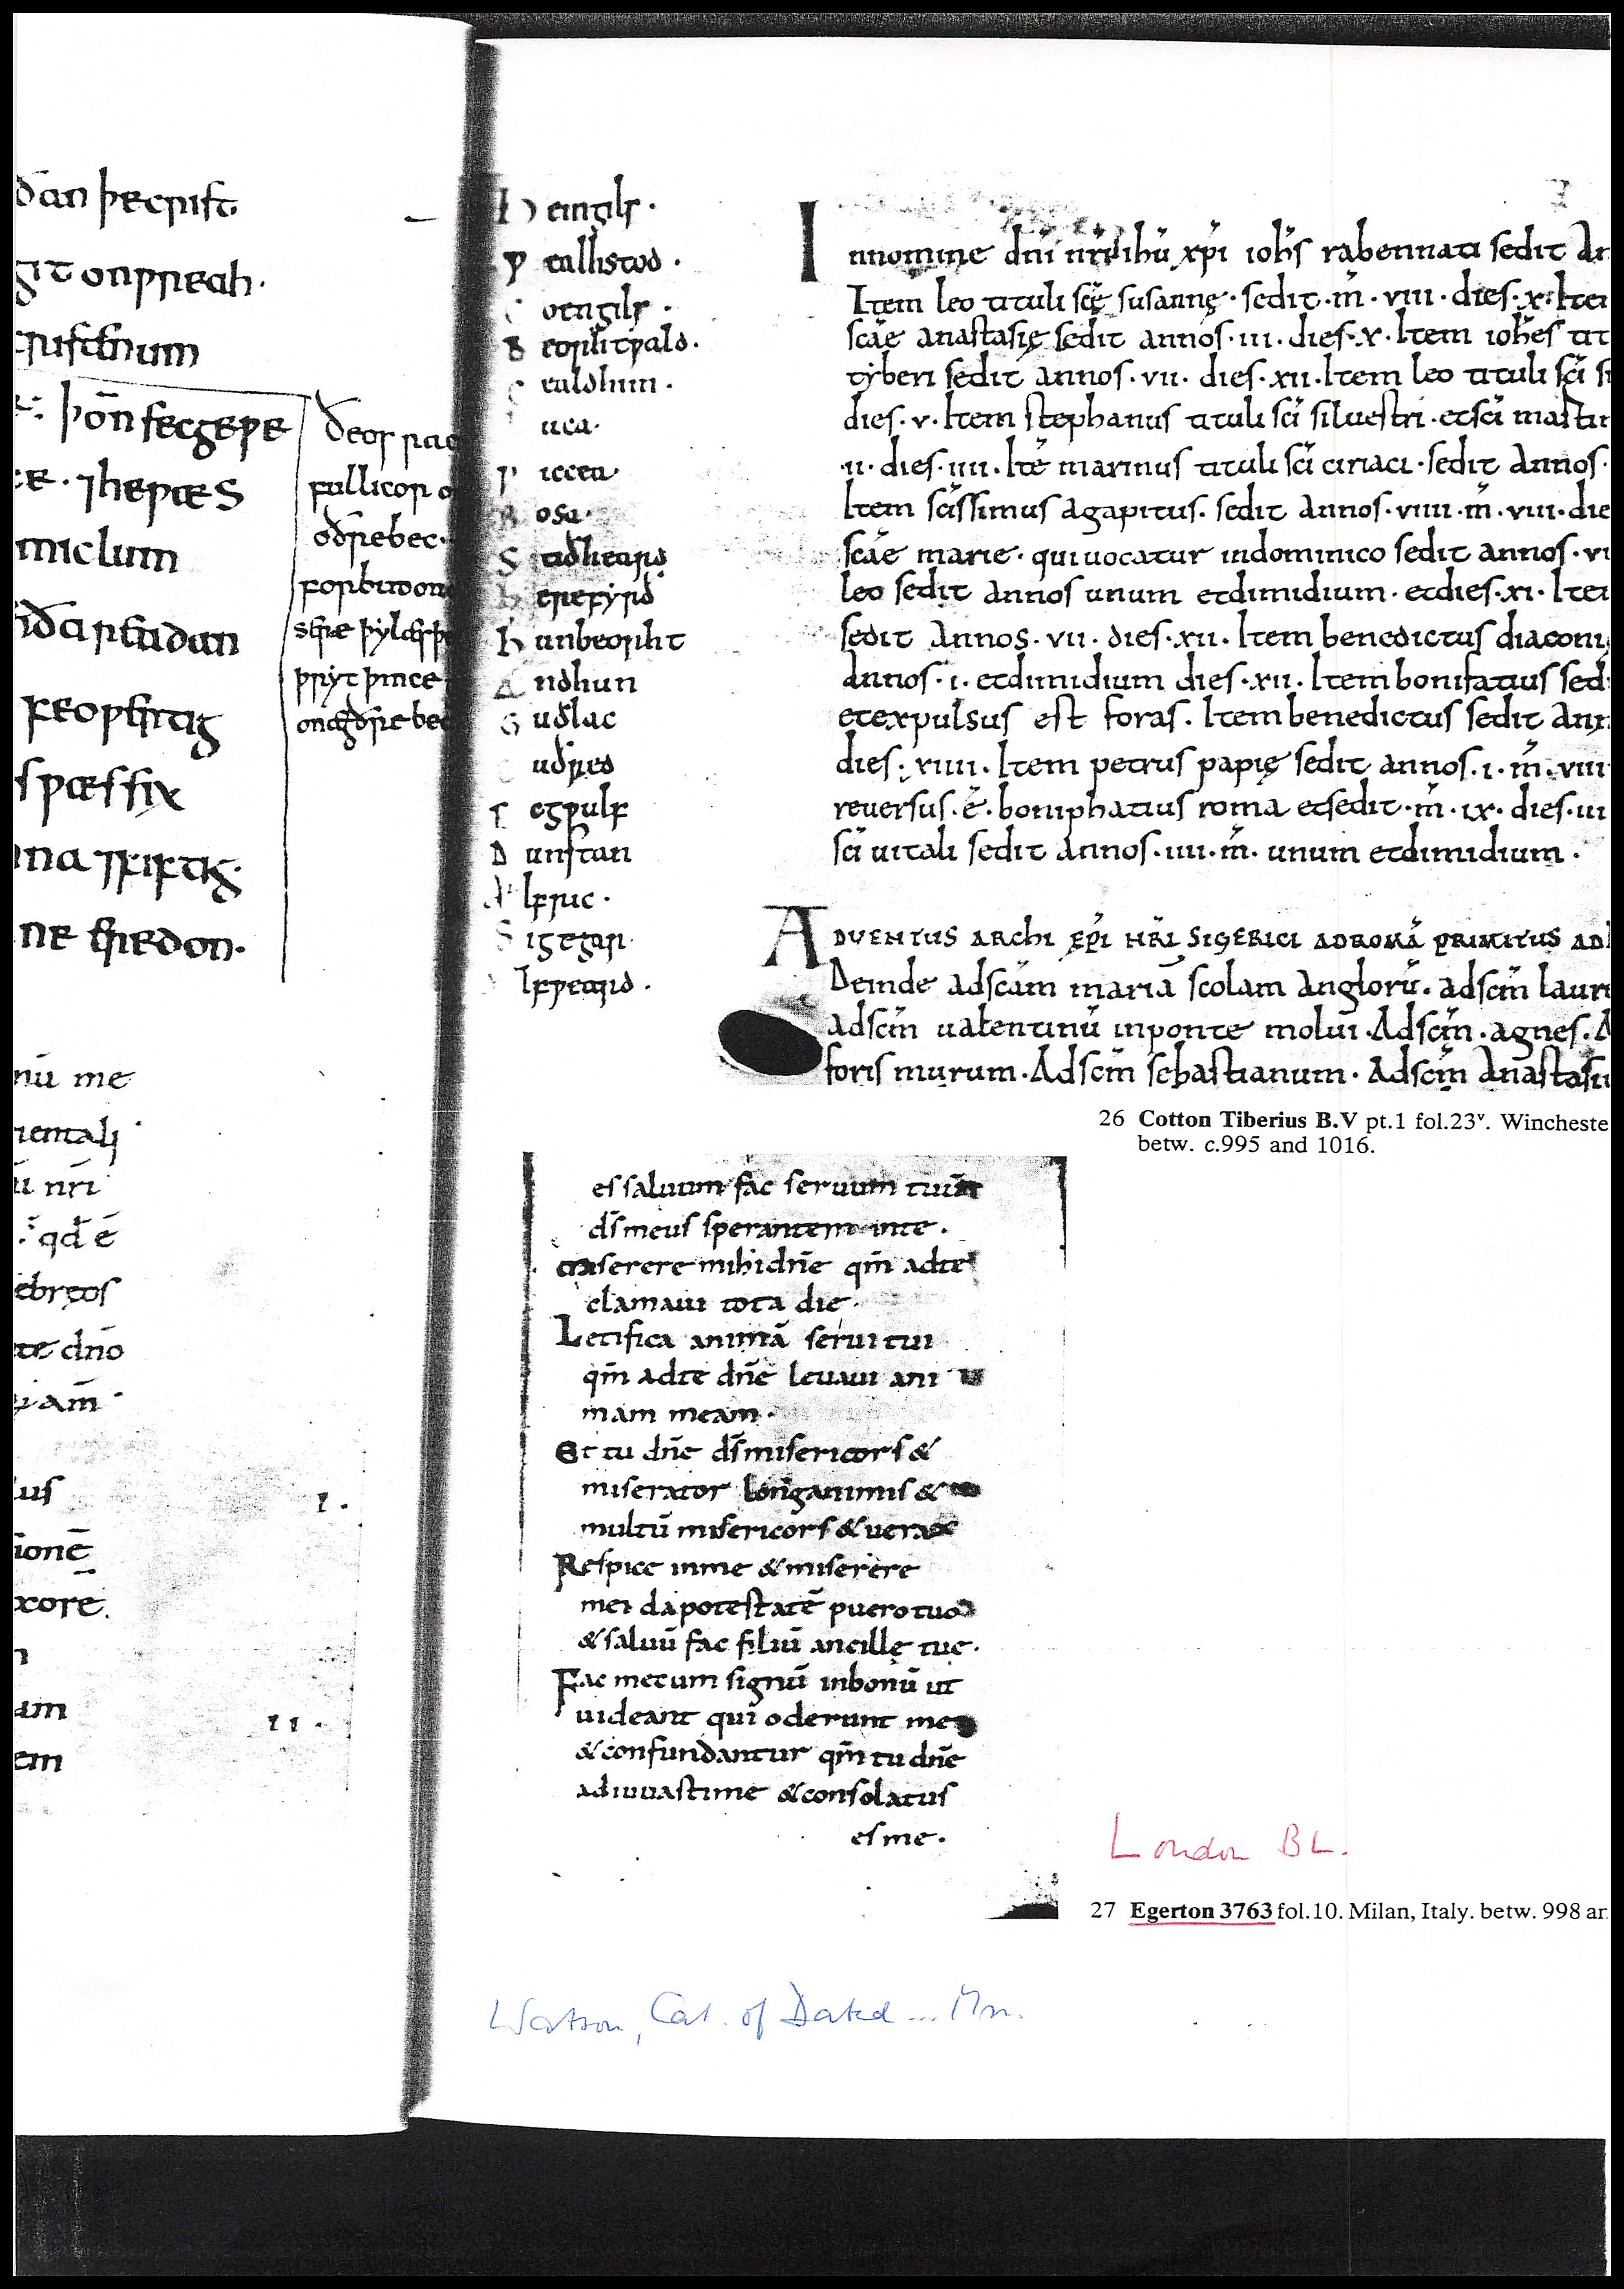 ðan þecrist.
git onwreah.
cristenum
þoñ secgewe
⁊hewæs
miclum
feowertig
swæs fix
⁊fiftig.
ðeos
fullicor
oðrebec.
forbudon
writ þince
onægðrebec
nū me
rientali
nr̄i
qđ ē
ebreos
te dn̄o
iam
us
ı.
ionē
xore.
am
ıı.
em
eingils.
ealhstod.
otengils.
eorhtwald.
ealdhun.
uca.
iccea.
osa.
S tidheard
hereferð
hunbeorht
Andhun
Guðlac
uðred
T ogwulf
Dunstan
Ælfric.
Sigegar
lfweard.
Innomine dn̄i nr̄i ihū xp̄i ioh̄s rabennati sedit An
Item leo tituli sc̄ę susannę. sedit. m̄. viii. dies. x. Ite
sc̄ae anastasię sedit annos. iii. dies. x. Item ioh̄es tit
tyberi sedit annos. vii. dies. xii. Item leo tituli sc̄i s
dies. v. Item stephanus tituli sc̄i siluestri. etsc̄i martin
ii. dies. iiii. Itē marinus tituli sc̄i ciriaci. sedit annos.
Item sc̄issimus agapitus. sedit annos. viiii. m̄. viii. die
sc̄ae marie. quiuocatur indominico sedit annos. vi
leo sedit annos unum etdimidium. etdies. xi. Ite
sedit annos. vii. dies. xii. Item benedictus diaconi
annos. i. etdimidium dies. xii. Item bonifatius sed
etexpulsus est foras. Item benedictus sedit ann
dies. xiiii. Item petrus papię sedit annos. i. m̄. viii
reuersus. ē. boniphatius roma etsedit. m̄. ix. dies. iii
sc̄i uitali sedit annos. iiii. m̄. unum etdimidium.
ADVENTUS ARCHI EP̄I NR̄I SIGERICI ADROMĀ PRIMITUS AD
Deinde adsc̄am mariā scolam anglorū. adsc̄m laur
adsc̄m ualentinū inponte molui. Adsc̄m. agnes.
foris murum. Adsc̄m sebastianum. Adsc̄m Anastasii
26 Cotton Tiberius B.V pt.1 fol.23ᵛ. Wincheste
betw. c.995 and 1016.
es saluum fac seruum tuū
ds̄ meus sperantem inte.
miserere mihi dn̄e qm̄ adte
clamaui tota die.
Letifica animā serui tui
qm̄ adte dn̄e leuaui ani
mam meam.
Et tu dn̄e ds̄ misericors &
miserator longanimis &
multū misericors & uerax
Respice inme & miserere
mei da potestatē puero tuo
& saluū fac filiū ancillę tuę.
Fac mecum signū inbonū ut
uideant qui oderunt me
& confundantur qm̄ tu dn̄e
adiuuastime & consolatus
es me.
London BL.
27 Egerton 3763 fol.10. Milan, Italy. betw. 998 an
Watson, Cat. of Dated ... Mn.